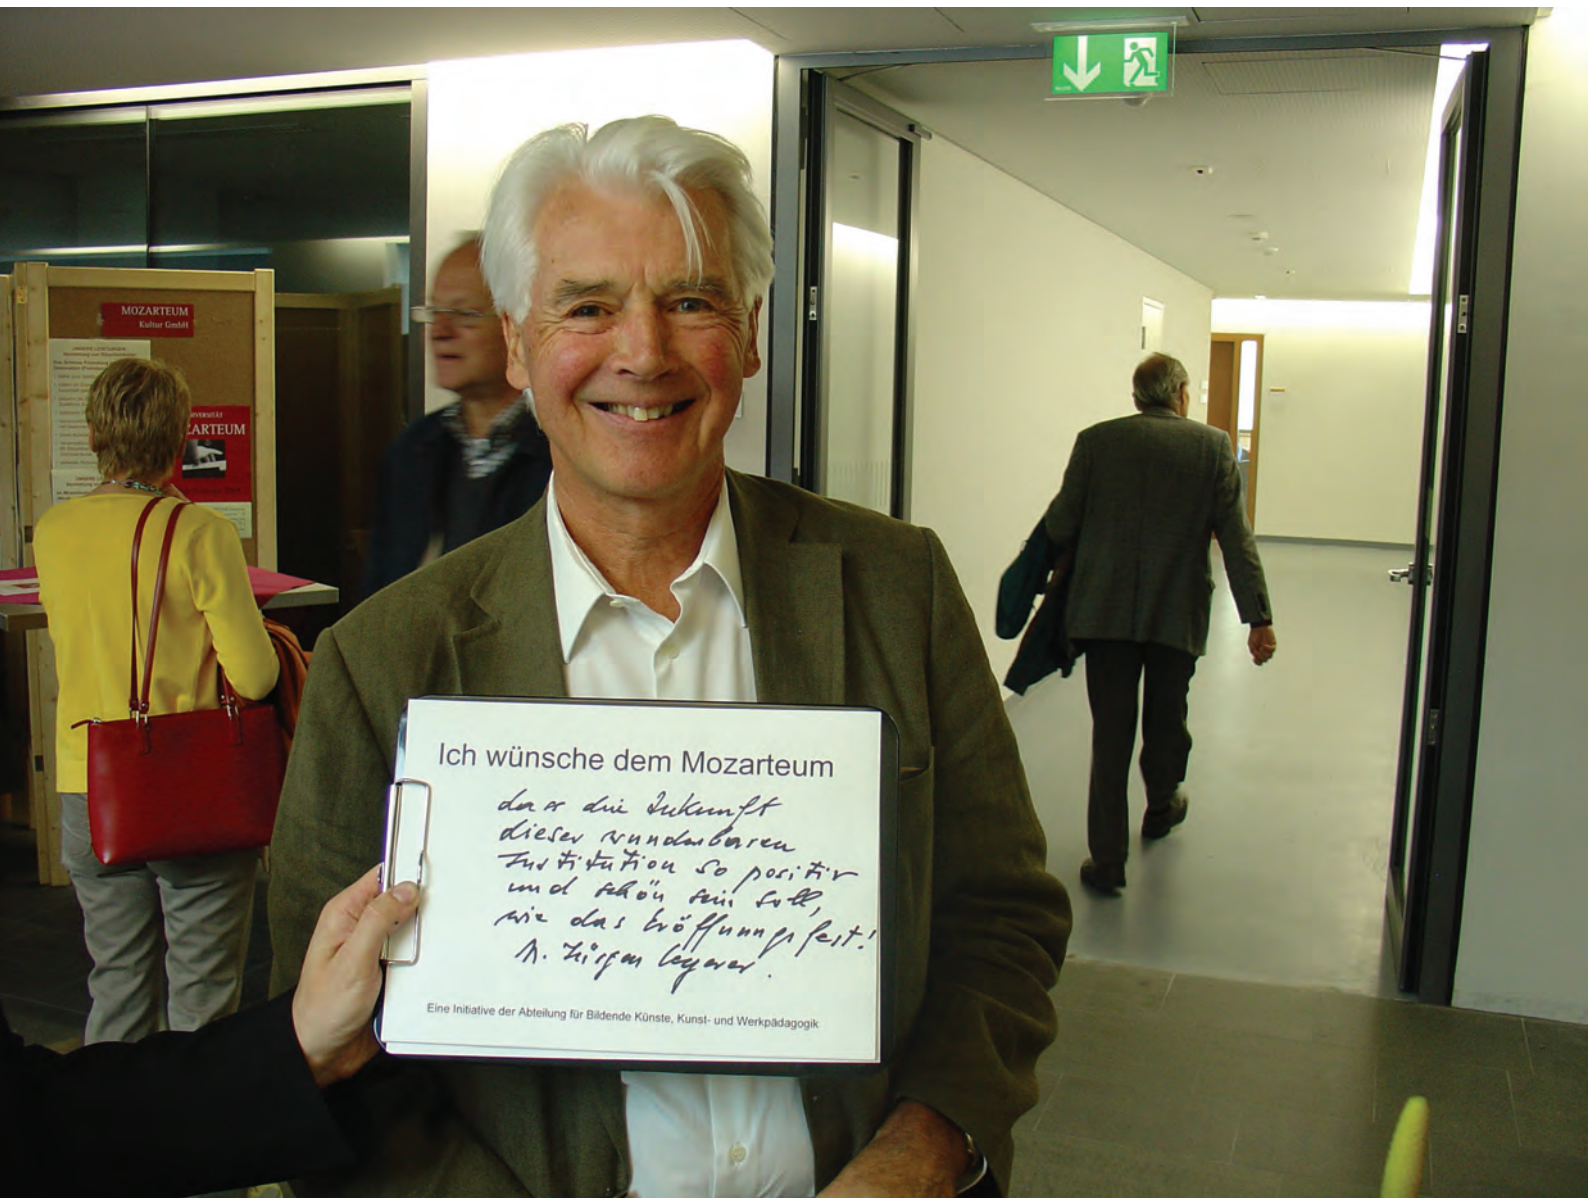 MOZARTEUM
Kultur GmbH
UNSERE LEISTUNGEN
MOZARTEUM
Ich wünsche dem Mozarteum
dass die Zukunft
dieser wunderbaren
Institution so positiv
und schön sein soll,
wie das Eröffnungsfest!
Eine Initiative der Abteilung für Bildende Künste, Kunst- und Werkpädagogik